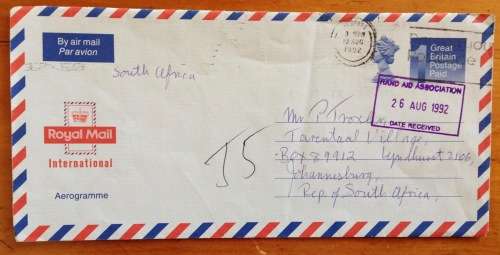 By air mail
Par avion
South Africa
1992
1
Great
Britain
Postage
Paid
RAND AID ASSOCIATION
26 AUG 1992
DATE RECEIVED
Royal Mail
International
Aerogramme
J5
Mr P.
Tarentaal Village,
Box 89912 Lyndhurst 2106,
Johannesburg,
Rep of South Africa,